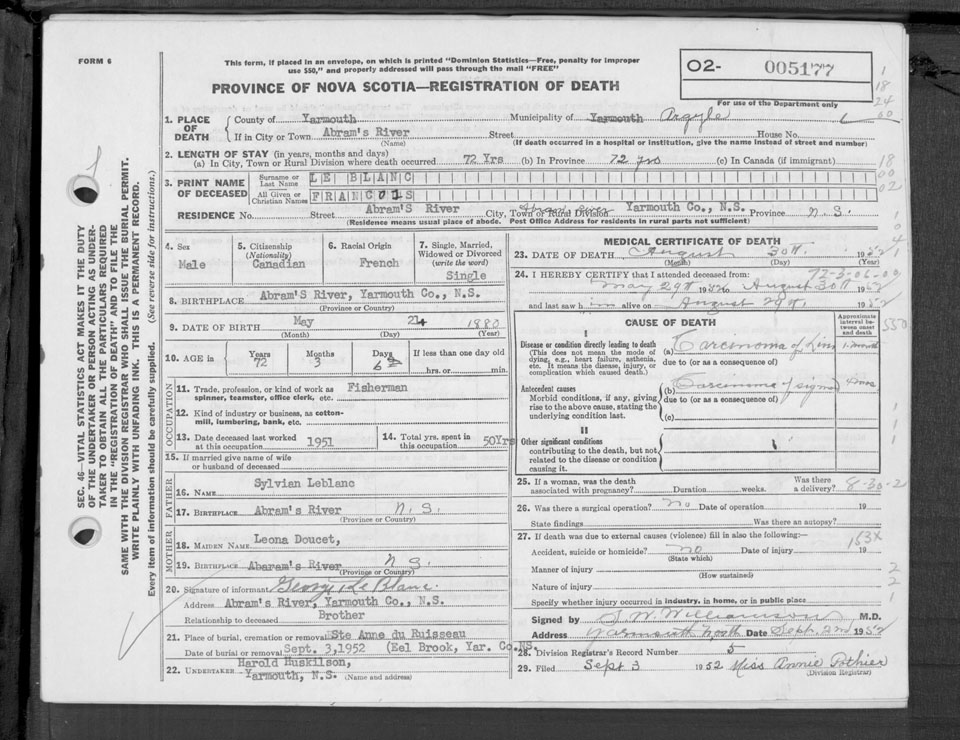 FORM 6
This form, if placed in an envelope, on which is printed "Dominion Statistics—Free, penalty for improper
use $50," and properly addressed will pass through the mail "FREE"
PROVINCE OF NOVA SCOTIA—REGISTRATION OF DEATH
O2- 005177
For use of the Department only
1. PLACE OF DEATH
County of Yarmouth Municipality of Yarmouth Argyle
If in City or Town Abram's River Street House No.
(Name) (If death occurred in a hospital or institution, give the name instead of street and number)
2. LENGTH OF STAY (in years, months and days)
(a) In City, Town or Rural Division where death occurred 72 Yrs (b) In Province 72 yrs (c) In Canada (if immigrant)
3. PRINT NAME OF DECEASED
Surname or Last Name LE BLANC
All Given or Christian Names FRANCOIS
RESIDENCE No. Street Abram'S River City, Town or Rural Division Abram River Yarmouth Co., N.S. Province N. S.
(Residence means usual place of abode. Post Office Address for residents in rural parts not sufficient)
4. Sex
Male
5. Citizenship
(Nationality)
Canadian
6. Racial Origin
French
7. Single, Married,
Widowed or Divorced
(write the word)
Single
8. BIRTHPLACE Abram'S River, Yarmouth Co., N.S.
(Province or Country)
9. DATE OF BIRTH May 24 1880
(Month) (Day)
10. AGE in
Years 72
Months 3
Days 6
If less than one day old
hrs. or min.
OCCUPATION
11. Trade, profession, or kind of work as
spinner, teamster, office clerk, etc. Fisherman
12. Kind of industry or business, as cotton-
mill, lumbering, bank, etc.
13. Date deceased last worked
at this occupation 1951
14. Total yrs. spent in
this occupation 50Yrs
15. If married give name of wife
or husband of deceased
FATHER
16. NAME Sylvian Leblanc
17. BIRTHPLACE Abram's River N. S.
(Province or Country)
MOTHER
18. MAIDEN NAME Leona Doucet,
19. BIRTHPLACE Abaram's River N S.
(Province or Country)
20. Signature of informant George Le Blanc
Address Abram's River, Yarmouth Co., N.S.
Relationship to deceased Brother
21. Place of burial, cremation or removal Ste Anne du Ruisseau
Date of burial or removal Sept. 3,1952 (Eel Brook, Yar. Co.NS.
22. UNDERTAKER Harold Huskilson,
Yarmouth, N.S. (Name and address)
MEDICAL CERTIFICATE OF DEATH
23. DATE OF DEATH August 30th. 1952
(Month) (Day) (Year)
72-3-06-09
24. I HEREBY CERTIFY that I attended deceased from:
May 29th 1952 to August 30th 1952
and last saw him alive on August 29th. 1952
CAUSE OF DEATH
Approximate
interval between
onset
and death
I
Disease or condition directly leading to death
(This does not mean the mode of
dying, e.g., heart failure, asthenia,
etc. It means the disease, injury, or
complication which caused death.)
(a) Carcinoma of 1 month
due to (or as a consequence of)
Antecedent causes
Morbid conditions, if any, giving
rise to the above cause, stating the
underlying condition last.
(b) Carcinoma of
due to (or as a consequence of)
(c)
II
Other significant conditions
contributing to the death, but not
related to the disease or condition
causing it.
25. If a woman, was the death
associated with pregnancy? Duration weeks. Was there
a delivery? 8-30-2
26. Was there a surgical operation? no Date of operation 19
State findings Was there an autopsy?
27. If death was due to external causes (violence) fill in also the following:—
163X
Accident, suicide or homicide? no Date of injury 19
(State which)
Manner of injury
(How sustained)
Nature of injury
Specify whether injury occurred in industry, in home, or in public place
Signed by J. W. Williamson M.D.
Address Yarmouth North Date Sept. 2nd 1952
28. Division Registrar's Record Number 5
29. Filed Sept 3 1952 Miss Annie Pothier
(Division Registrar)
SEC. 46—VITAL STATISTICS ACT MAKES IT THE DUTY
OF THE UNDERTAKER OR PERSON ACTING AS UNDER-
TAKER TO OBTAIN ALL THE PARTICULARS REQUIRED
IN THE "REGISTRATION OF DEATH" AND TO FILE THE
SAME WITH THE DIVISION REGISTRAR WHO SHALL ISSUE THE BURIAL PERMIT.
WRITE PLAINLY WITH UNFADING INK. THIS IS A PERMANENT RECORD.
Every item of information should be carefully supplied. (See reverse side for instructions.)